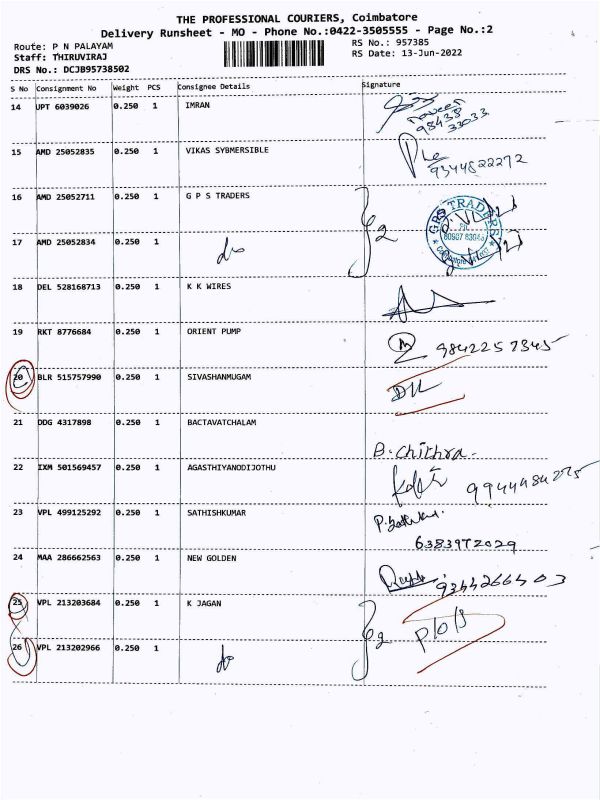 THE PROFESSIONAL COURIERS, Coimbatore
Delivery Runsheet - MO - Phone No.:0422-3505555 - Page No.:2
Route: P N PALAYAM
RS No.: 957385
Staff: THIRUVIRAJ
RS Date: 13-Jun-2022
DRS No.: DCJB95738502
S No Consignment No Weight PCS Consignee Details Signature
14 UPT 6039026 0.250 1 IMRAN
Naveen
98438
33033
15 AMD 25052835 0.250 1 VIKAS SYBMERSIBLE
9344822272
16 AMD 25052711 0.250 1 G P S TRADERS
2
GPS TRADERS
17 AMD 25052834 0.250 1 do
18 DEL 528168713 0.250 1 K K WIRES
19 RKT 8776684 0.250 1 ORIENT PUMP
9842257345
20 BLR 515757990 0.250 1 SIVASHANMUGAM
DIL
21 DDG 4317898 0.250 1 BACTAVATCHALAM
B. Chithra.
22 IXM 501569457 0.250 1 AGASTHIYANODIJOTHU
9944984275
23 VPL 499125292 0.250 1 SATHISHKUMAR
6383972029
24 MAA 286662563 0.250 1 NEW GOLDEN
9344266403
25 VPL 213203684 0.250 1 K JAGAN
2
26 VPL 213202966 0.250 1 do